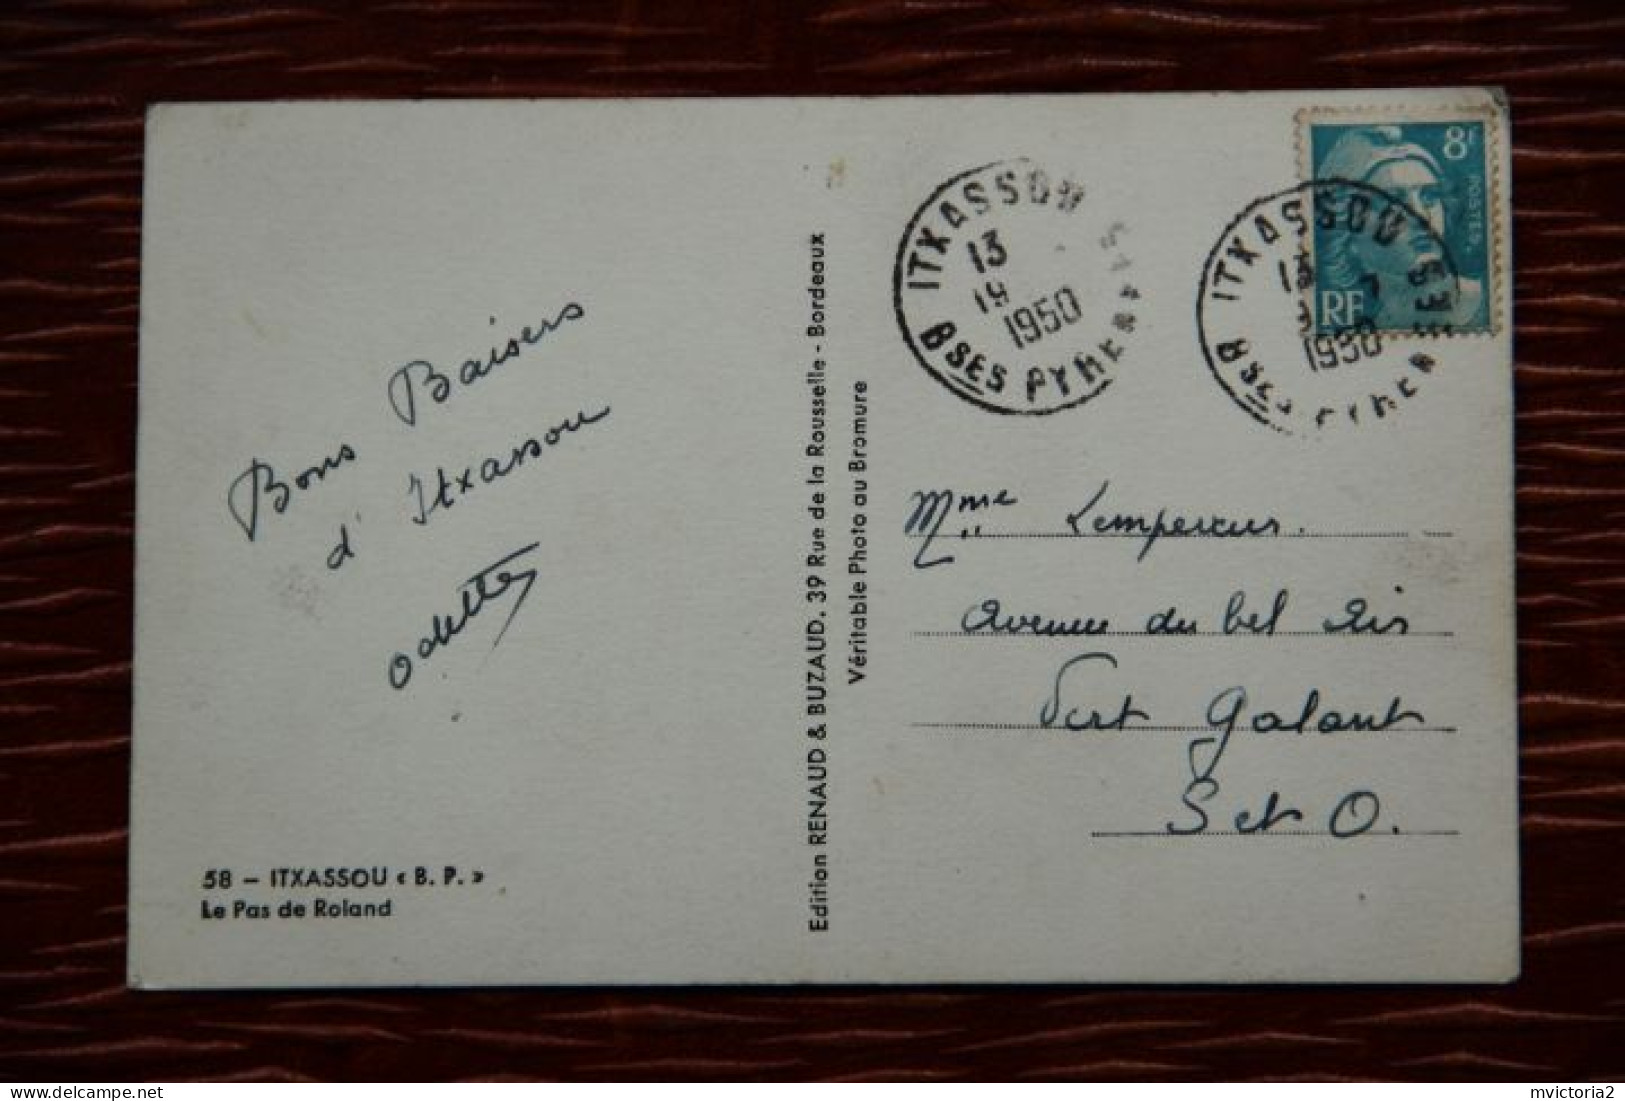 Bons Baisers
d'Itxassou
Odette
58 – ITXASSOU « B. P. »
Le Pas de Roland
Edition RENAUD & BUZAUD. 39 Rue de la Rousselle - Bordeaux
Véritable Photo au Bromure
ITXASSOU
13
19
1950
BSES PYRENEES
8F
POSTES
RF
ITXASSOU
1950
BSES PYRENEES
Mme Lempereur.
Avenue du bel Air
Vert Galant
S et O.
mvictoria2